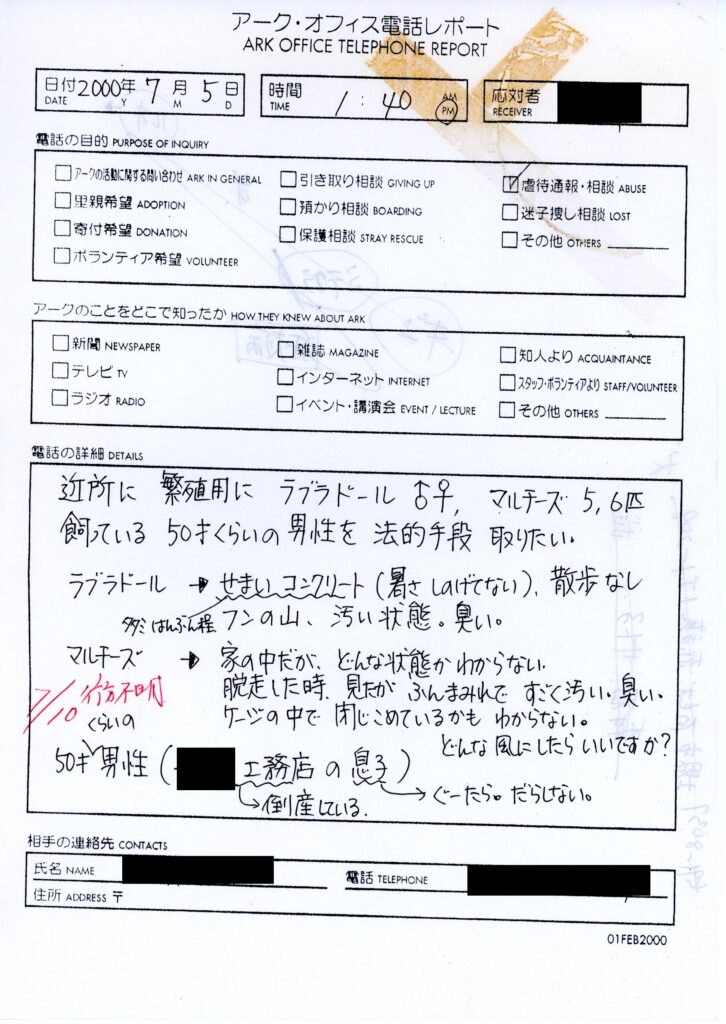 アーク・オフィス電話レポート
ARK OFFICE TELEPHONE REPORT
日付 2000年 7月 5日
DATE Y M D
時間 1:40 AM
TIME PM
応対者
RECEIVER
電話の目的 PURPOSE OF INQUIRY
アークの活動に関する問い合わせ ARK IN GENERAL
里親希望 ADOPTION
寄付希望 DONATION
ボランティア希望 VOLUNTEER
引き取り相談 GIVING UP
預かり相談 BOARDING
保護相談 STRAY RESCUE
虐待通報・相談 ABUSE
迷子捜し相談 LOST
その他 OTHERS
アークのことをどこで知ったか HOW THEY KNEW ABOUT ARK
新聞 NEWSPAPER
テレビ TV
ラジオ RADIO
雑誌 MAGAZINE
インターネット INTERNET
イベント・講演会 EVENT / LECTURE
知人より ACQUAINTANCE
スタッフ・ボランティアより STAFF/VOLUNTEER
その他 OTHERS
電話の詳細 DETAILS
近所に 繁殖用に ラブラドール ♂♀, マルチーズ 5,6匹
飼っている 50才くらいの男性を 法的手段 取りたい。
ラブラドール → せまい コンクリート (暑さ しのげてない)、散歩なし
タタミ はんぶん程 フンの山、汚い状態。臭い。
マルチーズ → 家の中だが、どんな状態かわからない.
脱走した時、見たが ふんまみれで すごく汚い。臭い。
ケージの中で 閉じこめているかも わからない。
7/10 行方不明
どんな風にしたらいいですか?
くらいの
50才 男性 ( 工務店の息子)
→倒産している.
→ ぐーたら。だらしない。
相手の連絡先 CONTACTS
氏名 NAME
電話 TELEPHONE
住所 ADDRESS 〒
01FEB2000